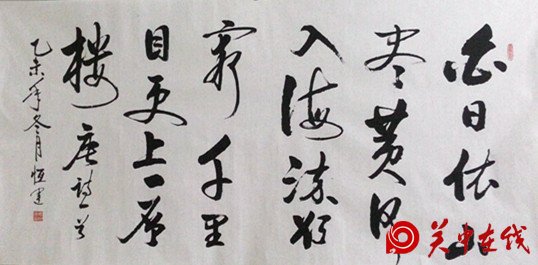 白日依山
尽黄河
入海流欲
穷千里
目更上一层
楼唐诗一首
乙未年冬月恒
关中在线